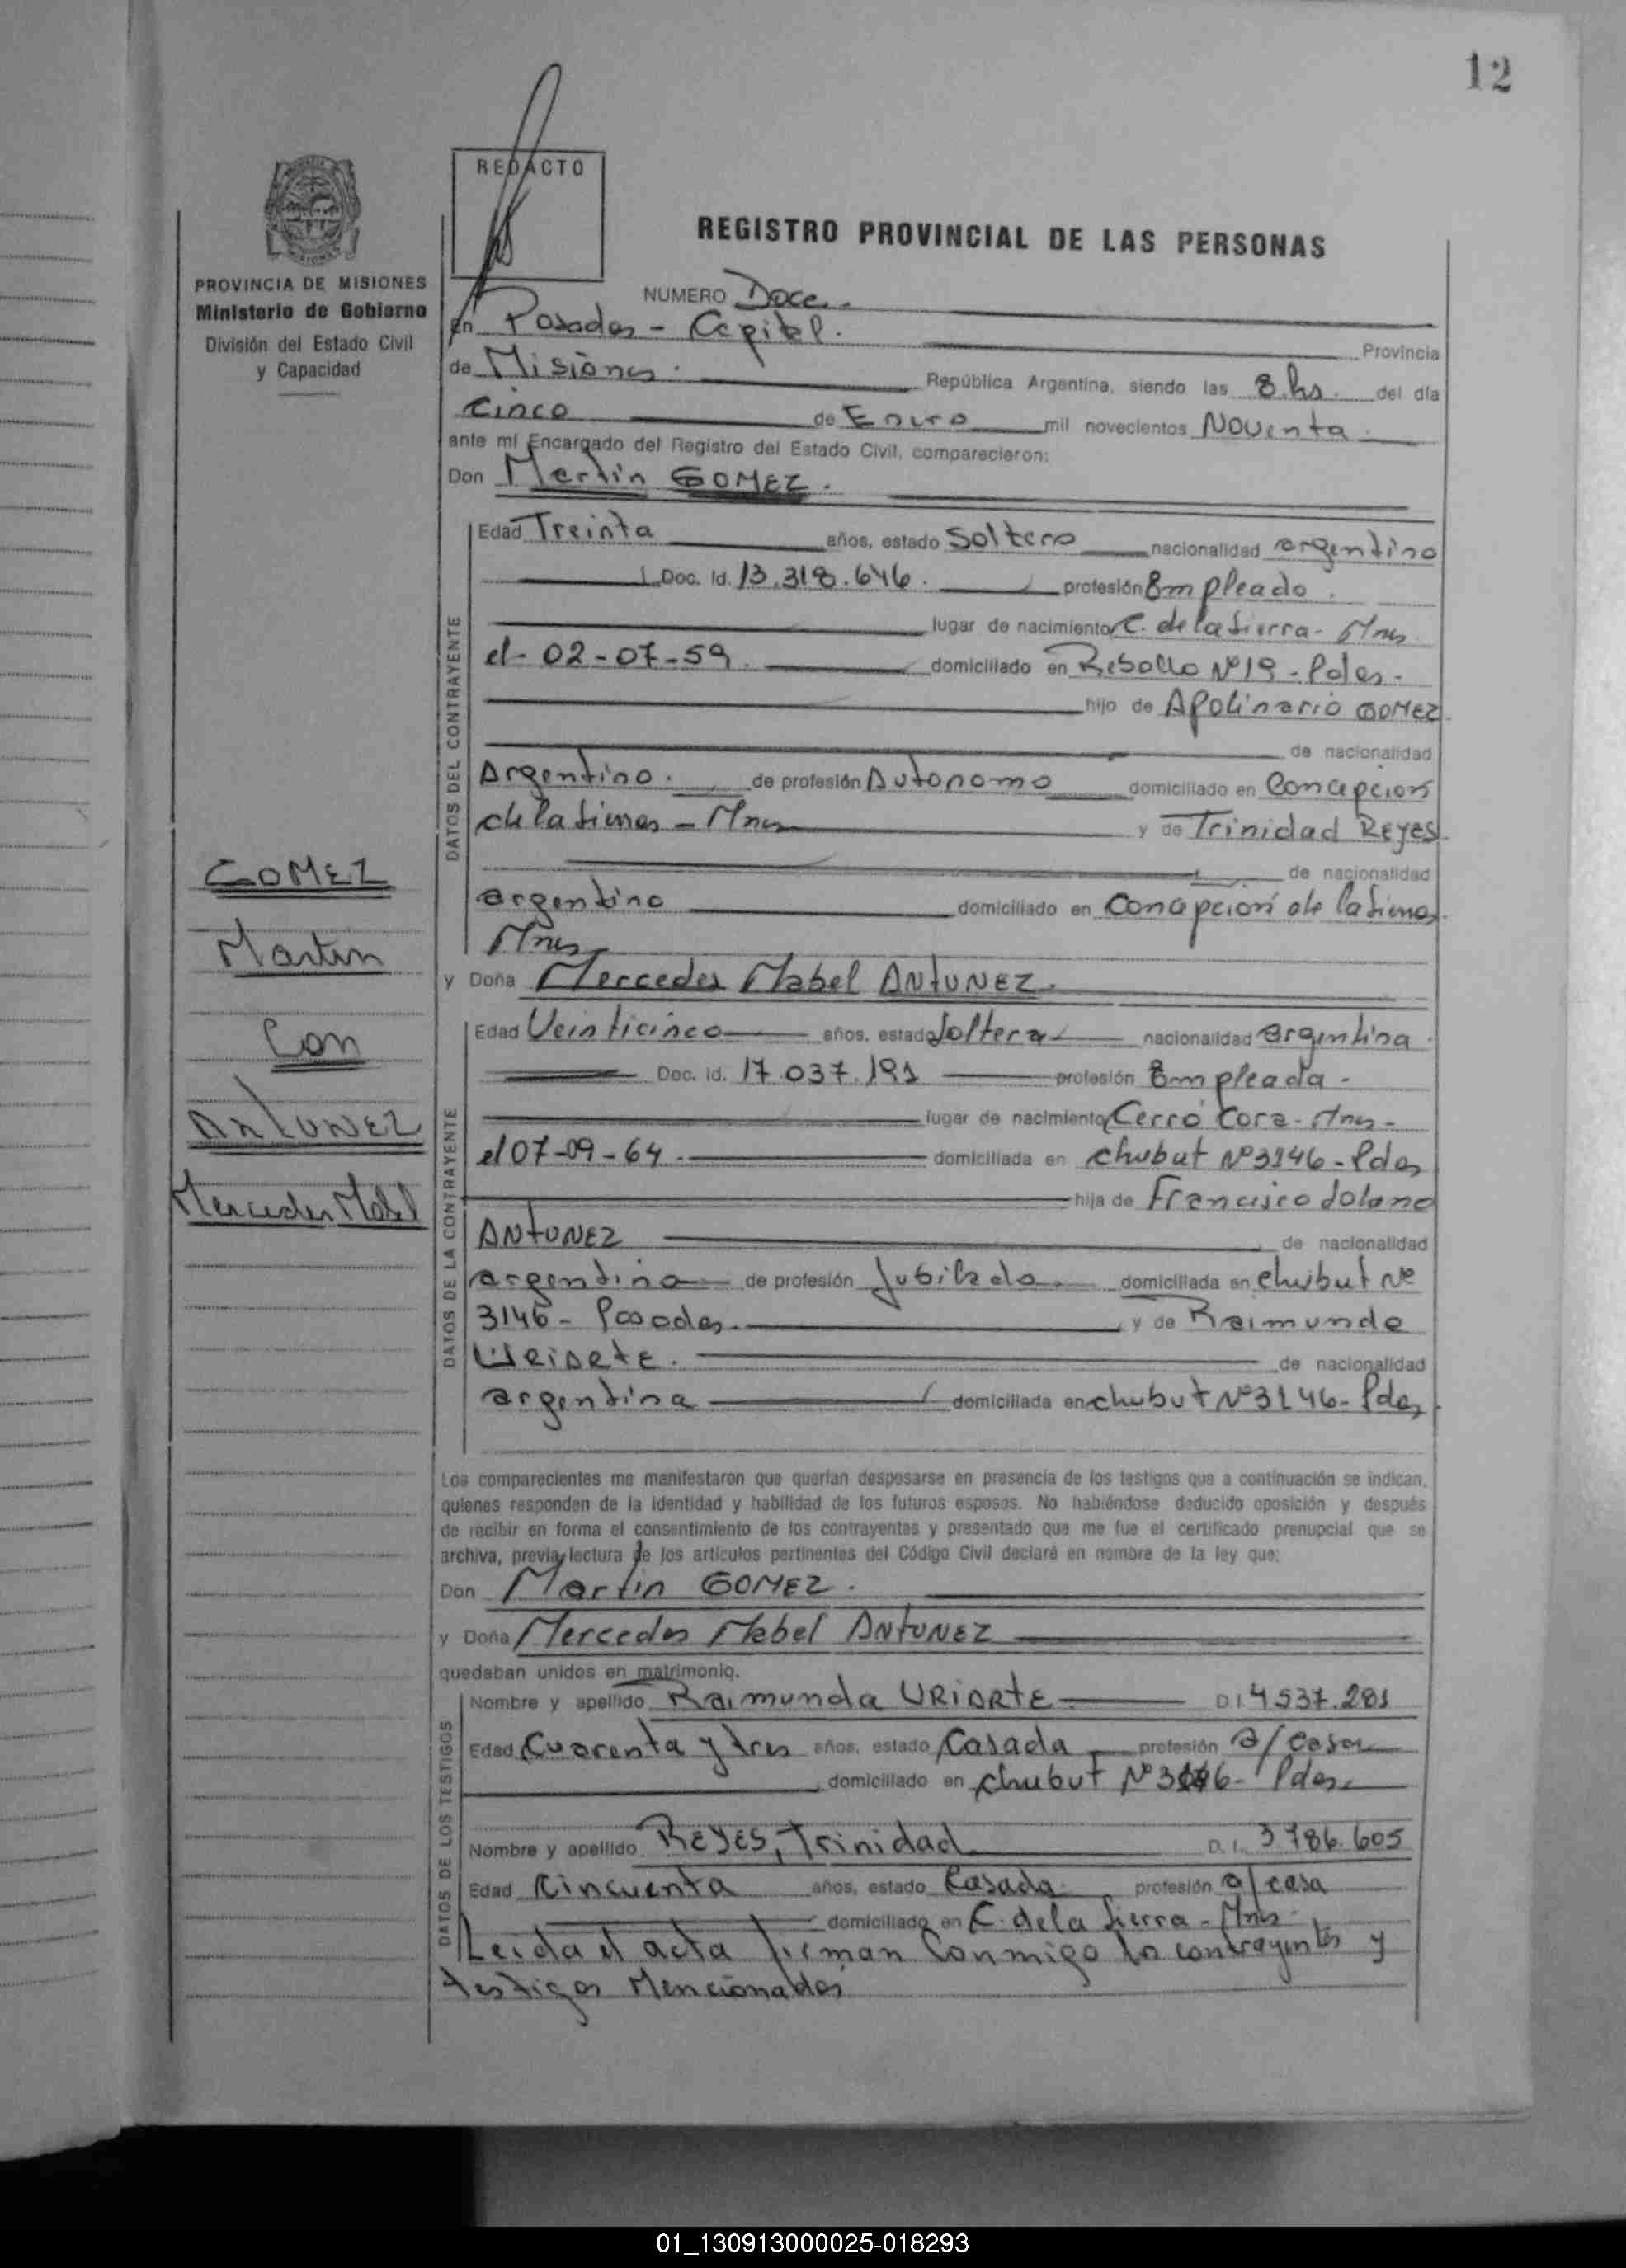 12
REDACTO
REGISTRO PROVINCIAL DE LAS PERSONAS
PROVINCIA DE MISIONES
Ministerio de Gobierno
División del Estado Civil
y Capacidad
NUMERO Doce.
En Posadas - Capital.
Provincia
de Misiones. República Argentina, siendo las 8.hs. del día
Cinco de Enero mil novecientos Noventa.
ante mí Encargado del Registro del Estado Civil, comparecieron:
Don Martin GOMEZ.
DATOS DEL CONTRAYENTE
Edad Treinta años, estado Soltero nacionalidad argentino
Doc. Id. 13.318.646. profesión Empleado.
lugar de nacimiento C. de la Sierra - Mnes
el - 02-07-59. domiciliado en Rebollo Nº19 - Pdas -
hijo de Apolinario GOMEZ.
de nacionalidad
Argentino. de profesión Autonomo domiciliado en Concepcion
de la Sierra - Mnes y de Trinidad Reyes.
de nacionalidad
argentina domiciliado en Concepcion de la Sierra,
Mnes
GOMEZ
Martin
Con
ANTUNEZ
Mercedes Mabel
y Doña Mercedes Mabel ANTUNEZ.
DATOS DE LA CONTRAYENTE
Edad Veinticinco años, estado Soltera nacionalidad argentina.
Doc. Id. 17.037.191 profesión Empleada -
lugar de nacimiento Cerro Cora - Mnes -
el 07-09-64. domiciliada en Chubut Nº3146 - Pdas
hija de Francisco Solano
ANTUNEZ de nacionalidad
argentina de profesión Jubilado. domiciliada en Chubut Nº
3146 - Posadas. y de Raimunda
URIARTE. de nacionalidad
argentina domiciliada en Chubut Nº3146 - Pdas
Los comparecientes me manifestaron que querían desposarse en presencia de los testigos que a continuación se indican,
quienes responden de la identidad y habilidad de los futuros esposos. No habiéndose deducido oposición y después
de recibir en forma el consentimiento de los contrayentes y presentado que me fue el certificado prenupcial que se
archiva, previa lectura de los artículos pertinentes del Código Civil declaré en nombre de la ley que:
Don Martin GOMEZ.
y Doña Mercedes Mabel ANTUNEZ
quedaban unidos en matrimonio.
DATOS DE LOS TESTIGOS
Nombre y apellido Raimunda URIARTE D.I. 4.537.281
Edad Cuarenta y tres años, estado Casada profesión a/casa
domiciliado en Chubut Nº 3146 - Pdas.
Nombre y apellido REYES, Trinidad D. I. 3.786.605
Edad Cincuenta años, estado Casada profesión a/casa
domiciliado en C. de la Sierra - Mnes.
Leida el acta firman Conmigo los contrayentes y
testigos Mencionados
01_130913000025-018293